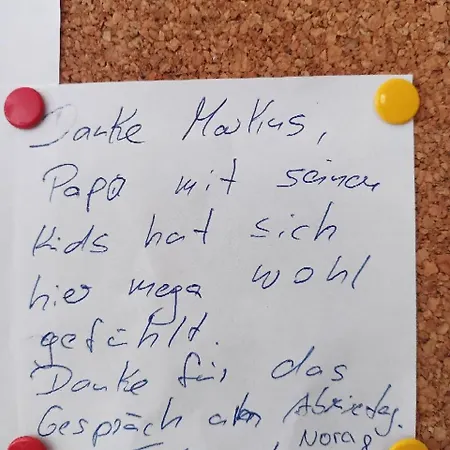 Danke Markus,
Papa mit seinen
Kids hat sich
hier mega wohl
gefühlt.
Danke für das
Gespräch am
Nora &